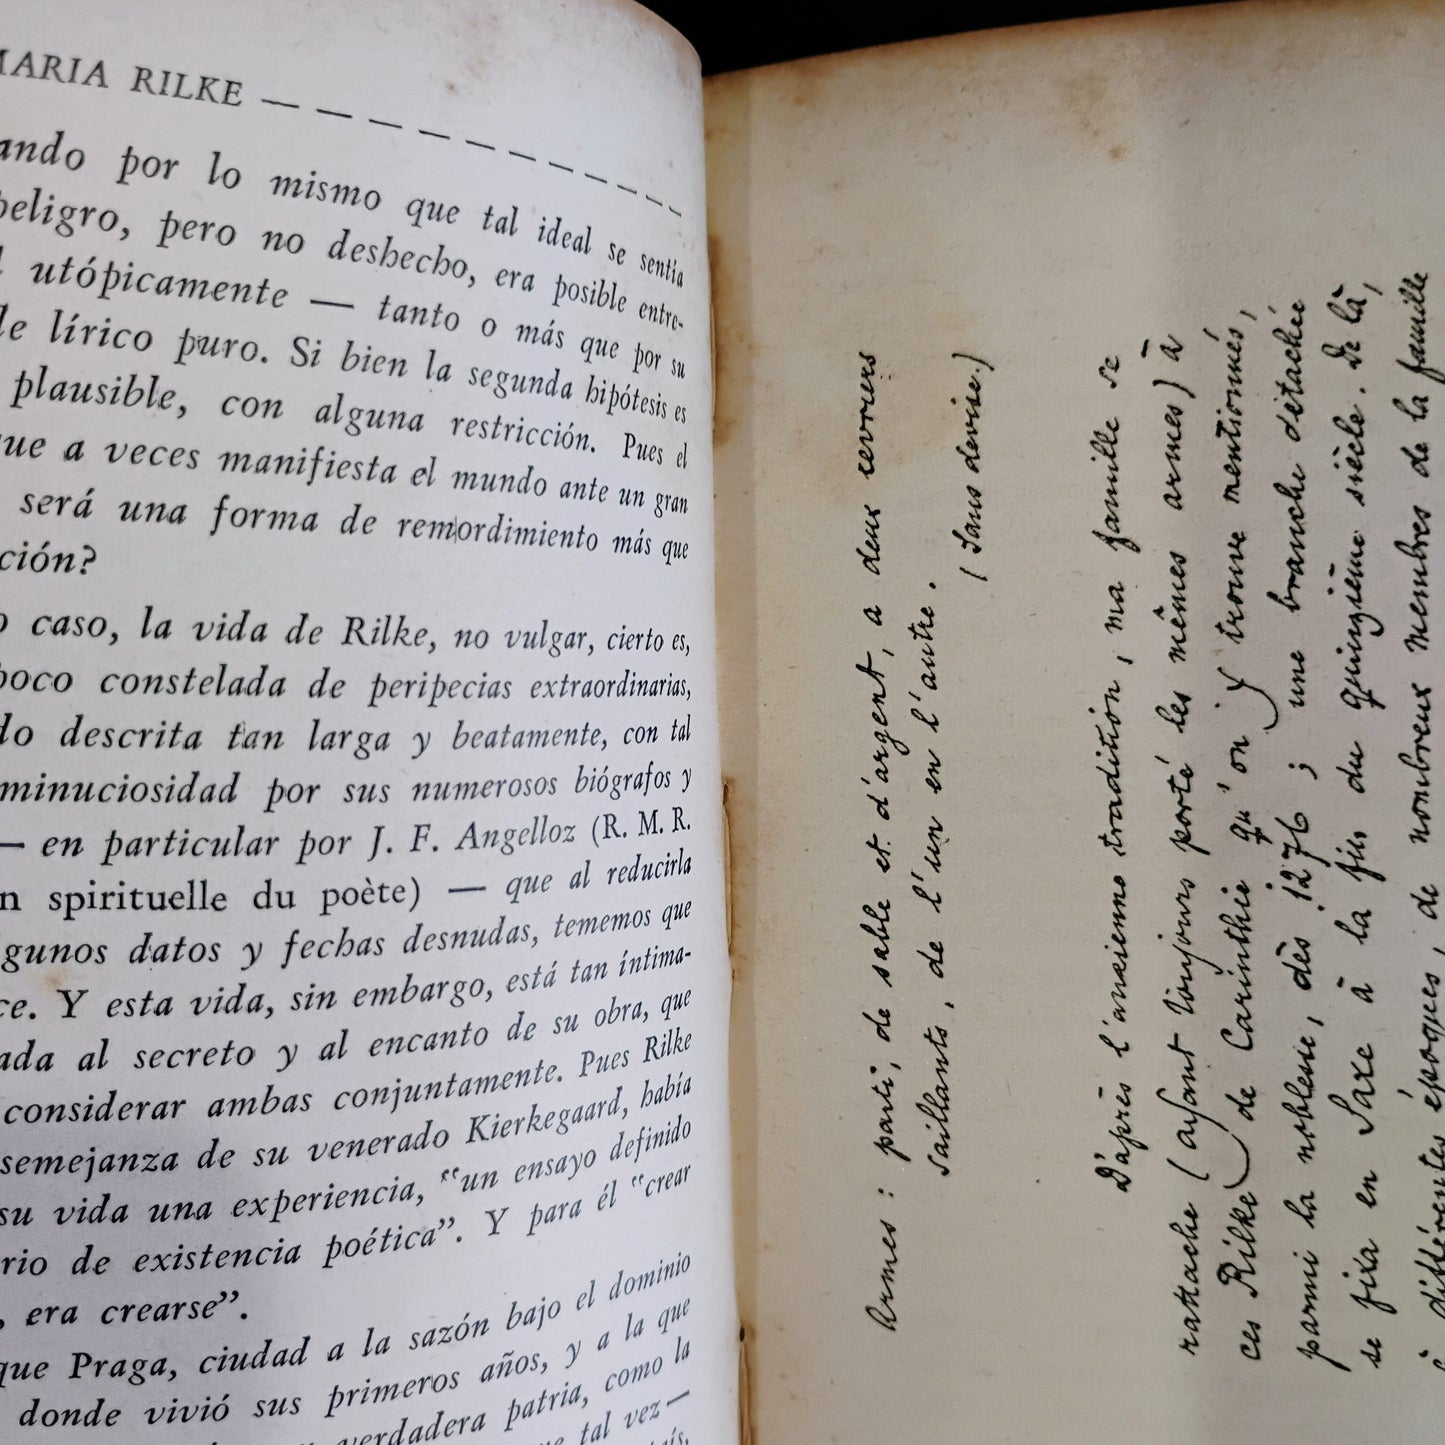 MARIA RILKE
ando por lo mismo que tal ideal se sentía
peligro, pero no deshecho, era posible entre-
utópicamente — tanto o más que por su
de lírico puro. Si bien la segunda hipótesis es
plausible, con alguna restricción. Pues el
que a veces manifiesta el mundo ante un gran
será una forma de remordimiento más que
ción?
o caso, la vida de Rilke, no vulgar, cierto es,
poco constelada de peripecias extraordinarias,
do descrita tan larga y beatamente, con tal
minuciosidad por sus numerosos biógrafos y
— en particular por J. F. Angelloz (R. M. R.
n spirituelle du poète) — que al reducirla
lgunos datos y fechas desnudas, tememos que
ce. Y esta vida, sin embargo, está tan íntima-
ada al secreto y al encanto de su obra, que
considerar ambas conjuntamente. Pues Rilke
semejanza de su venerado Kierkegaard, había
su vida una experiencia, “un ensayo definido
rio de existencia poética”. Y para él “crear
, era crearse”.
que Praga, ciudad a la sazón bajo el dominio
donde vivió sus primeros años, y a la que
verdadera patria, como la
tal vez—
Armes : parti, de sable et d'argent, a deux levriers
saillants, de l'un en l'autre.
(Sans devise.)
D'après l'ancienne tradition, ma famille se
rattache (ayant toujours porté les mêmes armes) à
ces Rilke de Carinthie qu'on y trouve mentionnés,
parmi la noblesse, dès 1276 ; une branche détachée
se fixa en Saxe à la fin du quinzième siècle. De là,
à différentes époques, de nombreux membres de la famille